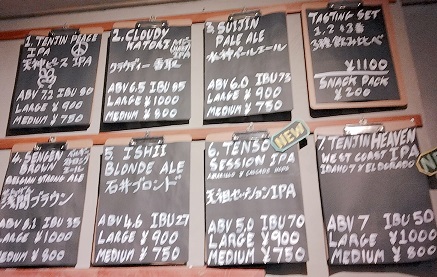 1. TENJIN PEACE
IPA
天神ピース IPA
ABV 7.2 IBU 80
LARGE ¥900
MEDIUM ¥750
2. CLOUDY
KATORI
HAZY IPA
クラウディー香取
ABV 6.5 IBU 65
LARGE ¥1000
MEDIUM ¥800
3. SUIJIN
PALE ALE
水神ペールエール
ABV 6.0 IBU 73
LARGE ¥900
MEDIUM ¥750
TASTING SET
1.2&3番
3種飲み比べ
¥1100
SNACK PACK
¥200
4. SENGEN
BROWN
BELGIAN STRONG ALE
浅間ブラウン
IBU 35
LARGE ¥1000
MEDIUM ¥800
5. ISHII
BLONDE ALE
石井ブロンド
ABV 4.6 IBU 27
LARGE ¥900
MEDIUM ¥750
NEW
6. TENSO
SESSION IPA
天祖セッションIPA
ABV 5.0 IBU 70
LARGE ¥900
MEDIUM ¥750
NEW
7. TENJIN HEAVEN
WEST COAST IPA
IDAHO 7 & ELDORADO
ABV 7 IBU 50
LARGE ¥1000
MEDIUM ¥800